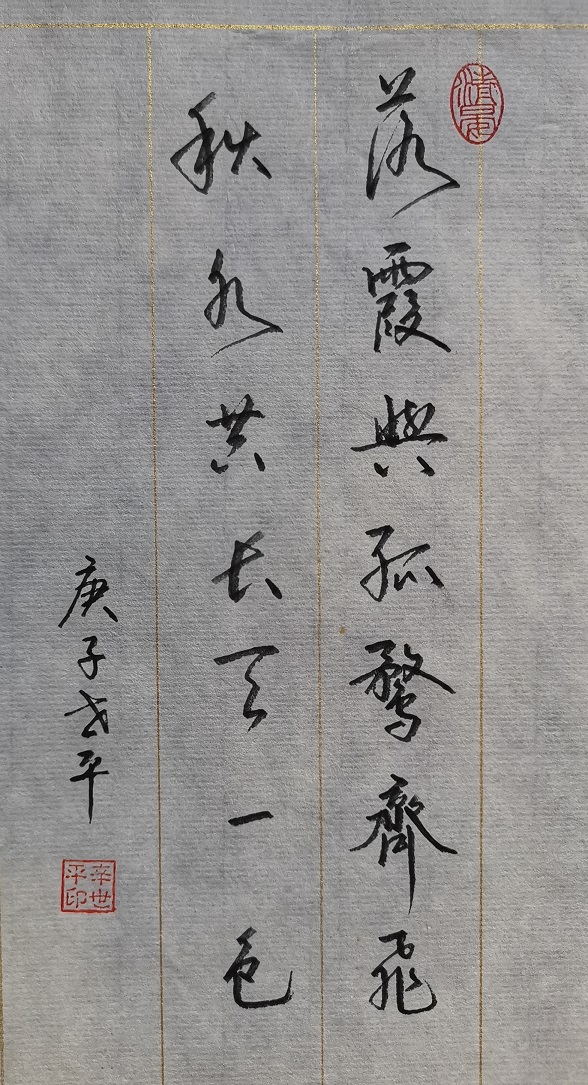 落霞與孤鶩齊飛
秋水共長天一色
庚子世平
辛世平印